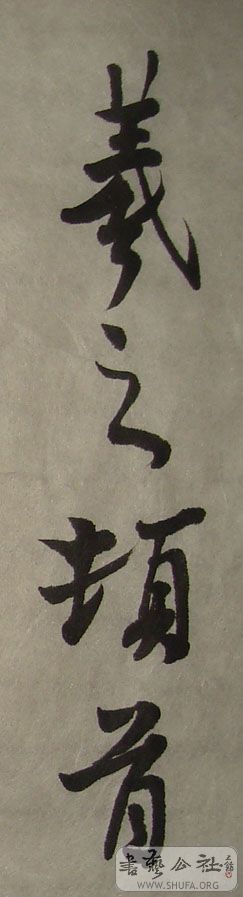 羲之頓首
書藝公社
WWW.SHUFA.ORG